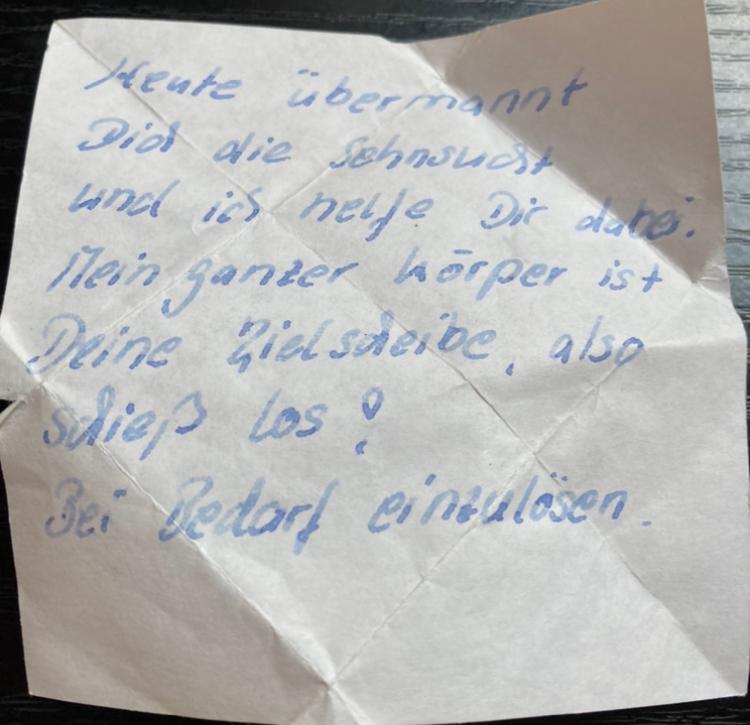 Heute übermannt
Dich die Sehnsucht
und ich helfe Dir dabei.
Mein ganzer Körper ist
Deine Zielscheibe, also
schieß los!
Bei Bedarf einzulösen.